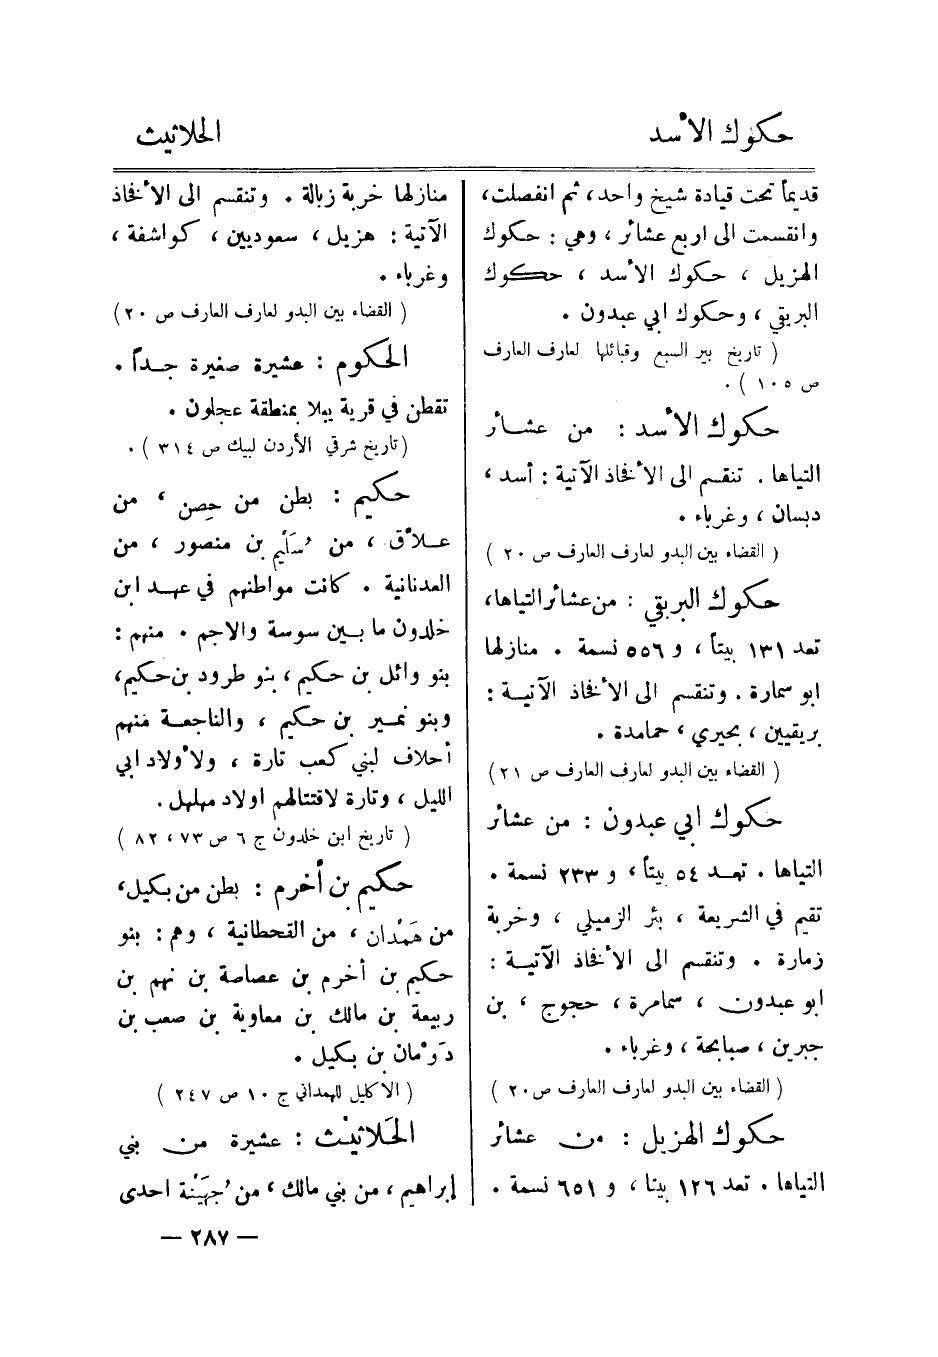 حكوك الأسد
الحلائيث
قديماً تحت قيادة شيخ واحد، ثم انفصلت،
وانقسمت الى اربع عشائر ، وهي : حكوك
الهزيل ، حكوك الأسد ، حكوك
البريقي ، وحكوك ابي عبدون .
( تاريخ بير السبع وقبائلها لعارف العارف
ص ١٠٥ ) .
حكوك الأسد : من عشائر
التياها . تنقسم الى الأفخاذ الآتية : أسد ،
دبسان ، وغرباء .
( القضاء بين البدو لعارف العارف ص ٢٠ )
حكوك البريقي : من عشائر التياها،
تعد ١٣١ بيتاً ، و ٥٥٦ نسمة . منازلها
ابو سمارة . وتنقسم الى الأفخاذ الآتية :
بريقيين ، بحيري ، حمامدة .
( القضاء بين البدو لعارف العارف ص ٢١ )
حكوك ابي عبدون : من عشائر
التياها . تعد ٥٤ بيتاً ، و ٢٣٣ نسمة .
تقيم في الشريعة ، بئر الزميلي ، وخربة
زمارة . وتنقسم الى الأفخاذ الآتية :
ابو عبدون ، سمامرة ، حجوج ، بن
جبرين ، صبابحة ، وغرباء .
( القضاء بين البدو لعارف العارف ص ٢٠ )
حكوك الهزيل : من عشائر
التياها . تعد ١٢٦ بيتا ، و ٦٥١ نسمة .
منازلها خربة زبالة . وتنقسم الى الأفخاذ
الآتية : هزيل ، سعوديين ، كواشفة ،
وغرباء .
( القضاء بين البدو لعارف العارف ص ٢٠ )
الحكوم : عشيرة صغيرة جداً .
تقطن في قرية يبلا بمنطقة عجلون .
(تاريخ شرقي الأردن لبيك ص ٣١٤ ) .
حكيم : بطن من حِصن ، من
علاّق ، من سُلَيْم بن منصور ، من
العدنانية . كانت مواطنهم في عهد ابن
خلدون ما بين سوسة والاجم . منهم :
بنو وائل بن حكيم ، بنو طرود بن حكيم ،
وبنو نمير بن حكيم ، والناجعة منهم
أحلاف لبني كعب تارة ، ولأولاد ابي
الليل ، وتارة لاقتتالهم اولاد مهلهل .
( تاريخ ابن خلدون ج ٦ ص ٧٣ ، ٨٢ )
حكيم بن أخرم : بطن من بكيل،
من هَمْدان ، من القحطانية ، وهم : بنو
حكيم بن أخرم بن عصاصة بن نهم بن
ربيعة بن مالك بن معاوية بن صعب بن
دَوْمان بن بكيل .
( الاكليل للهمداني ج ١٠ ص ٢٤٧ )
الحَلائيث : عشيرة من بني
إبراهيم ، من بني مالك ، من جُهَيْنة احدى
— ٢٨٧ —